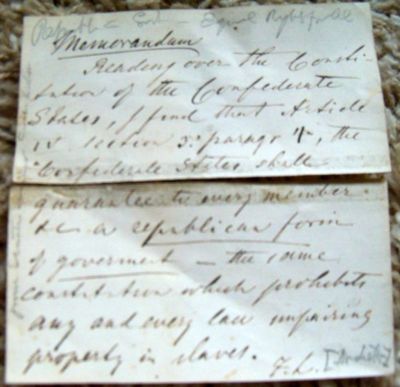 Republic Equal Rights for all
Memorandum
Reading over the Consti-
tution of the Confederate
States, I find that Article
IV section 3. parag. 4, the
"Confederate States shall
guarantee to every member
a republican form
of goverment – the same
constitution which prohibits
any and every law impairing
property in slaves.
F. L.